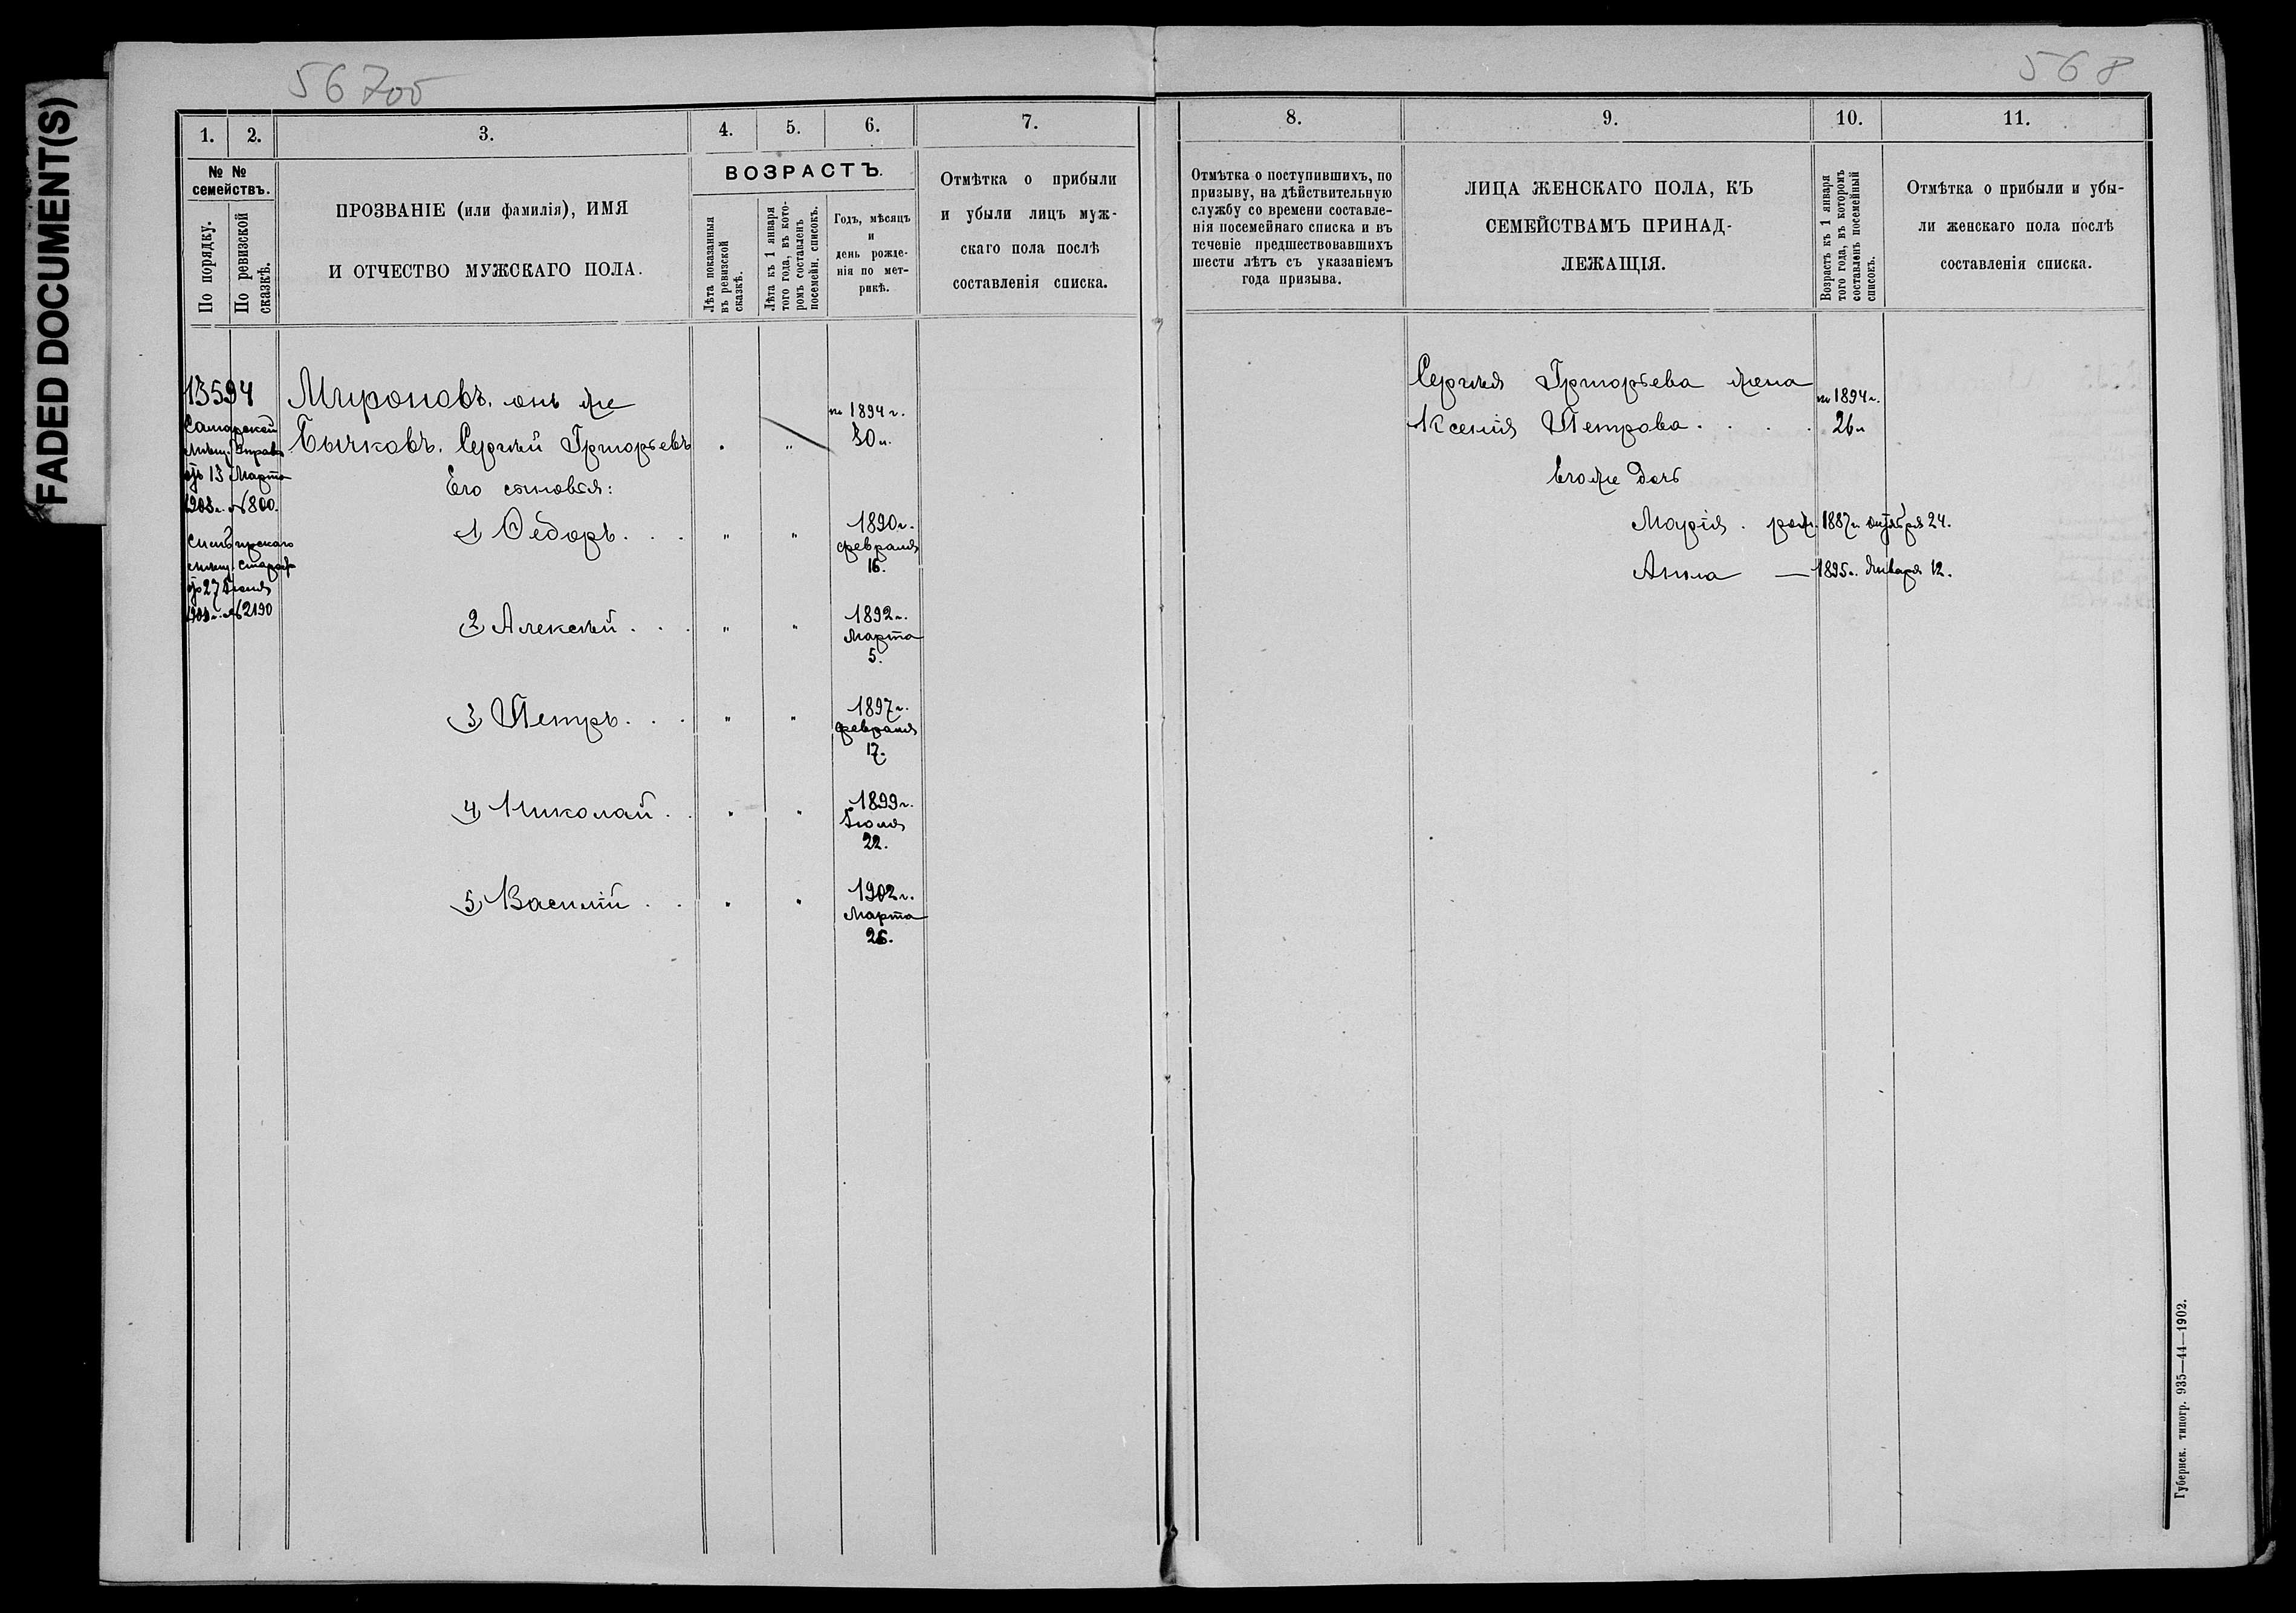 FADED DOCUMENT(S)
567об
568
1.
2.
3.
4.
5.
6.
7.
8.
9.
10.
11.
№ №
семействъ.
По порядку.
По ревизской
сказкѣ.
ПРОЗВАНІЕ (или фамилія), ИМЯ
И ОТЧЕСТВО МУЖСКАГО ПОЛА.
ВОЗРАСТЪ.
Лѣта показанныя
въ ревизской
сказкѣ.
Лѣта къ 1 января
того года, въ кото-
ромъ составленъ
посемейн. списокъ.
Годъ, мѣсяцъ
и
день рожде-
нія по мет-
рикѣ.
Отмѣтка о прибыли
и убыли лицъ муж-
скаго пола послѣ
составленія списка.
Отмѣтка о поступившихъ, по
призыву, на дѣйствительную
службу со времени составле-
нія посемейнаго списка и въ
теченіе предшествовавшихъ
шести лѣтъ съ указаніемъ
года призыва.
ЛИЦА ЖЕНСКАГО ПОЛА, КЪ
СЕМЕЙСТВАМЪ ПРИНАД-
ЛЕЖАЩІЯ.
Возрастъ къ 1 января
того года, въ которомъ
составленъ посемейный
списокъ.
Отмѣтка о прибыли и убы-
ли женскаго пола послѣ
составленія списка.
13594
Самарской
мѣщ. Управы
отъ 13 Марта
1908 г. №800.
Симбирскаго
мѣщ. Старосты
№2190
Мироновъ. онъ же
Бычковъ. Сергѣй Григорьевъ . "
по 1894 г.
30 л.
Его сыновья:
1) Ѳедоръ . . . " "
1890 г.
февраля
16.
2) Алексѣй . . . " "
1892 г.
Марта
5.
3) Петръ . . . " "
1897 г.
февраля
17.
4) Николай . . " "
1899 г.
Іюля
22.
5) Василій . . " "
1902 г.
Марта
26.
Сергѣя Григорьева жена
по 1894 г.
Ксенія Петрова . . . . 26 л
Его же дочь
Марія . рож. 1887 г. октября 24.
Анна — 1895 г. Января 12.
Губернск. типогр. 935—44—1902.